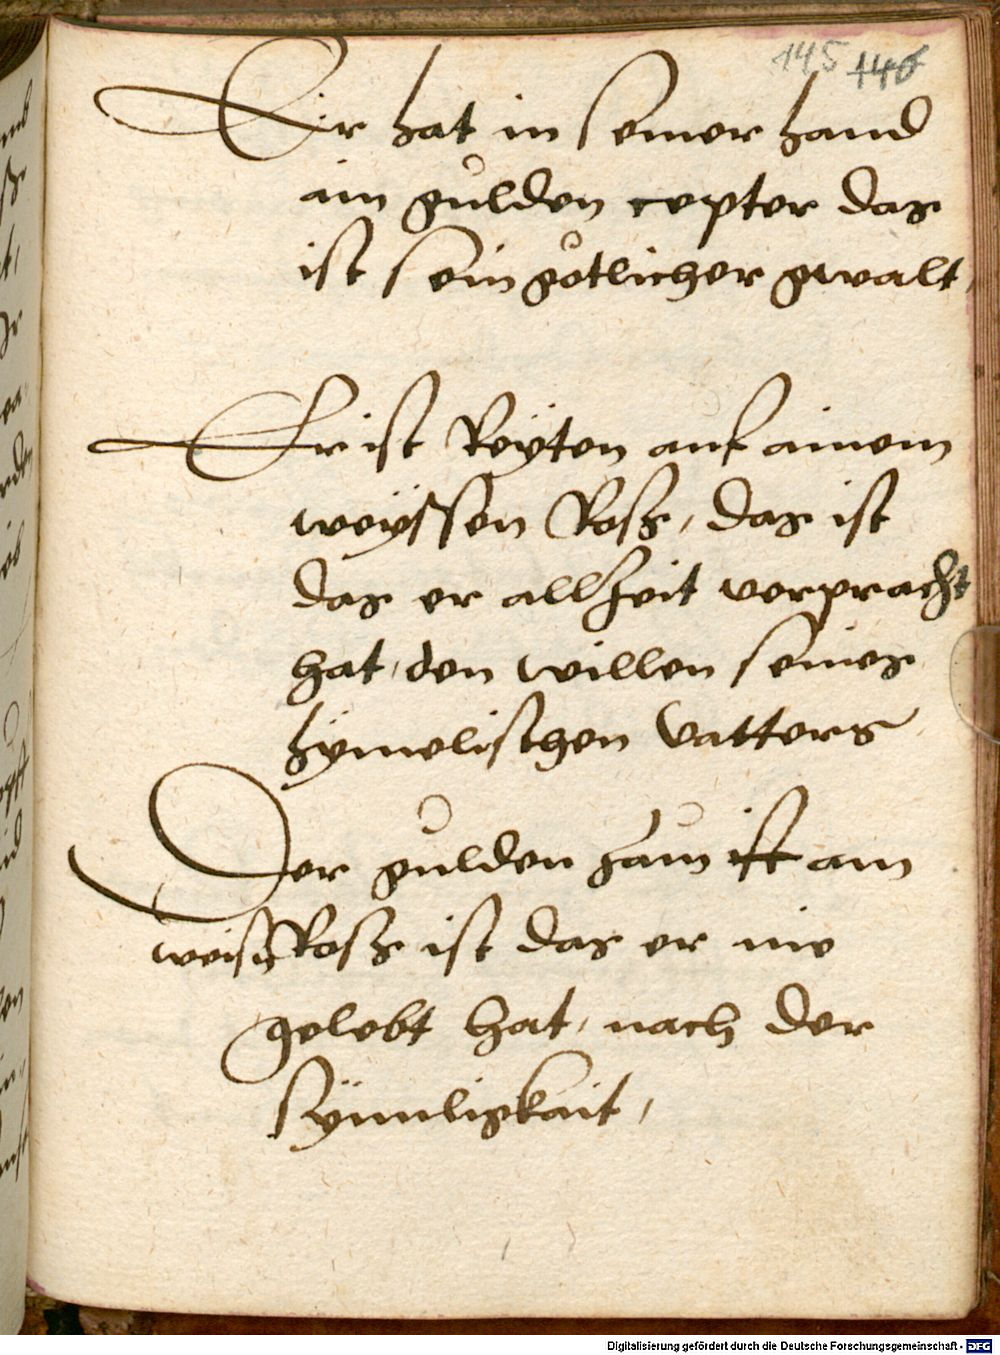 145 146
Er hat in seiner hand
ain gulden cepter das
ist sein götlicher gwalt,
Er ist Reÿten auf ainem
weÿssen Rosß, das ist
das er allzeit verpracht
hat, den willen seines
hÿmelischen Vatters
Der gulden zaum ist am
weisß Rosß ist das er nie
gelebt hat, nach der
sÿnnligkait,
Digitalisierung gefördert durch die Deutsche Forschungsgemeinschaft - DFG